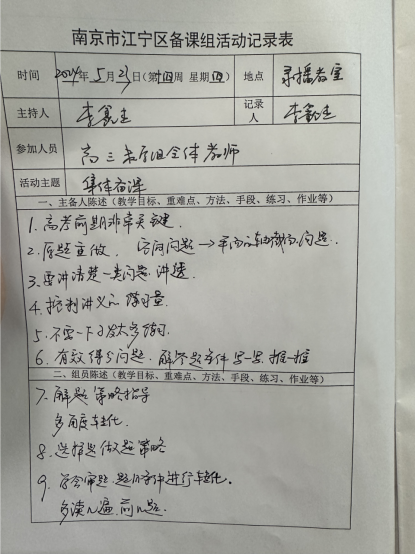 南京市江宁区备课组活动记录表
时间 2024年5月23日(第十四周 星期四) 地点 录播教室
主持人 李 记录人 李
参加人员 高三数学组全体教师
活动主题 集体备课
一、主备人陈述(教学目标、重难点、方法、手段、练习、作业等)
1. 高考前期非常关键.
2. 原题重做. 空间问题→平面 问题.
3. 要讲清楚一类问题. 讲透
4. 控制讲义的练习量
5. 不要一下子发太多
6. 有效得分问题. 解答题条件写一写,推一推
二、组员陈述(教学目标、重难点、方法、手段、练习、作业等)
7. 解题策略指导
多角度转化.
8. 选择题做题策略
9. 学会审题. 题目条件中进行转化.
多读几遍. 前几题.